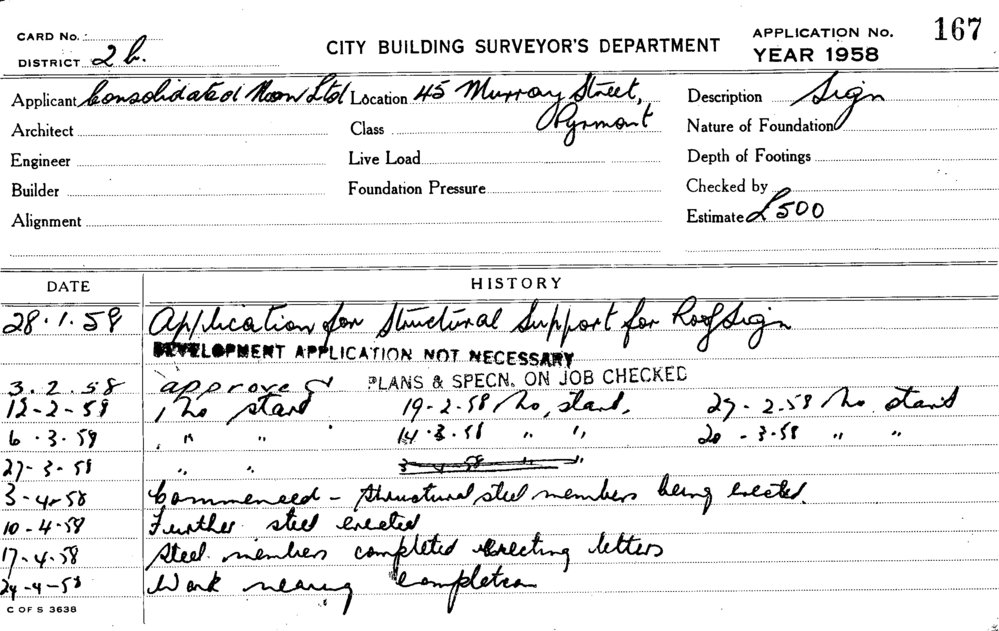 CARD No.
DISTRICT 2 b.
CITY BUILDING SURVEYOR'S DEPARTMENT
APPLICATION No. 167
YEAR 1958
Applicant Consolidated Neon Ltd Location 45 Murray Street, Description Sign
Architect Class Pyrmont Nature of Foundation
Engineer Live Load Depth of Footings
Builder Foundation Pressure Checked by
Alignment Estimate £500
DATE HISTORY
28.1.58 Application for Structural Support for Roof Sign
DEVELOPMENT APPLICATION NOT NECESSARY
3.2.58 approved PLANS & SPECN. ON JOB CHECKED
12-2-58 No start 19-2-58 No start. 27-2-58 No start
6.3.58 " " 14.3.58 " " 20-3-58 " "
27-3-58 " " 3-4-58 " "
3-4-58 Commenced - Structural steel members being erected.
10-4-58 Further steel erected
17-4-58 Steel members completed erecting letters
24-4-58 Work nearing completion
C OF S 3638